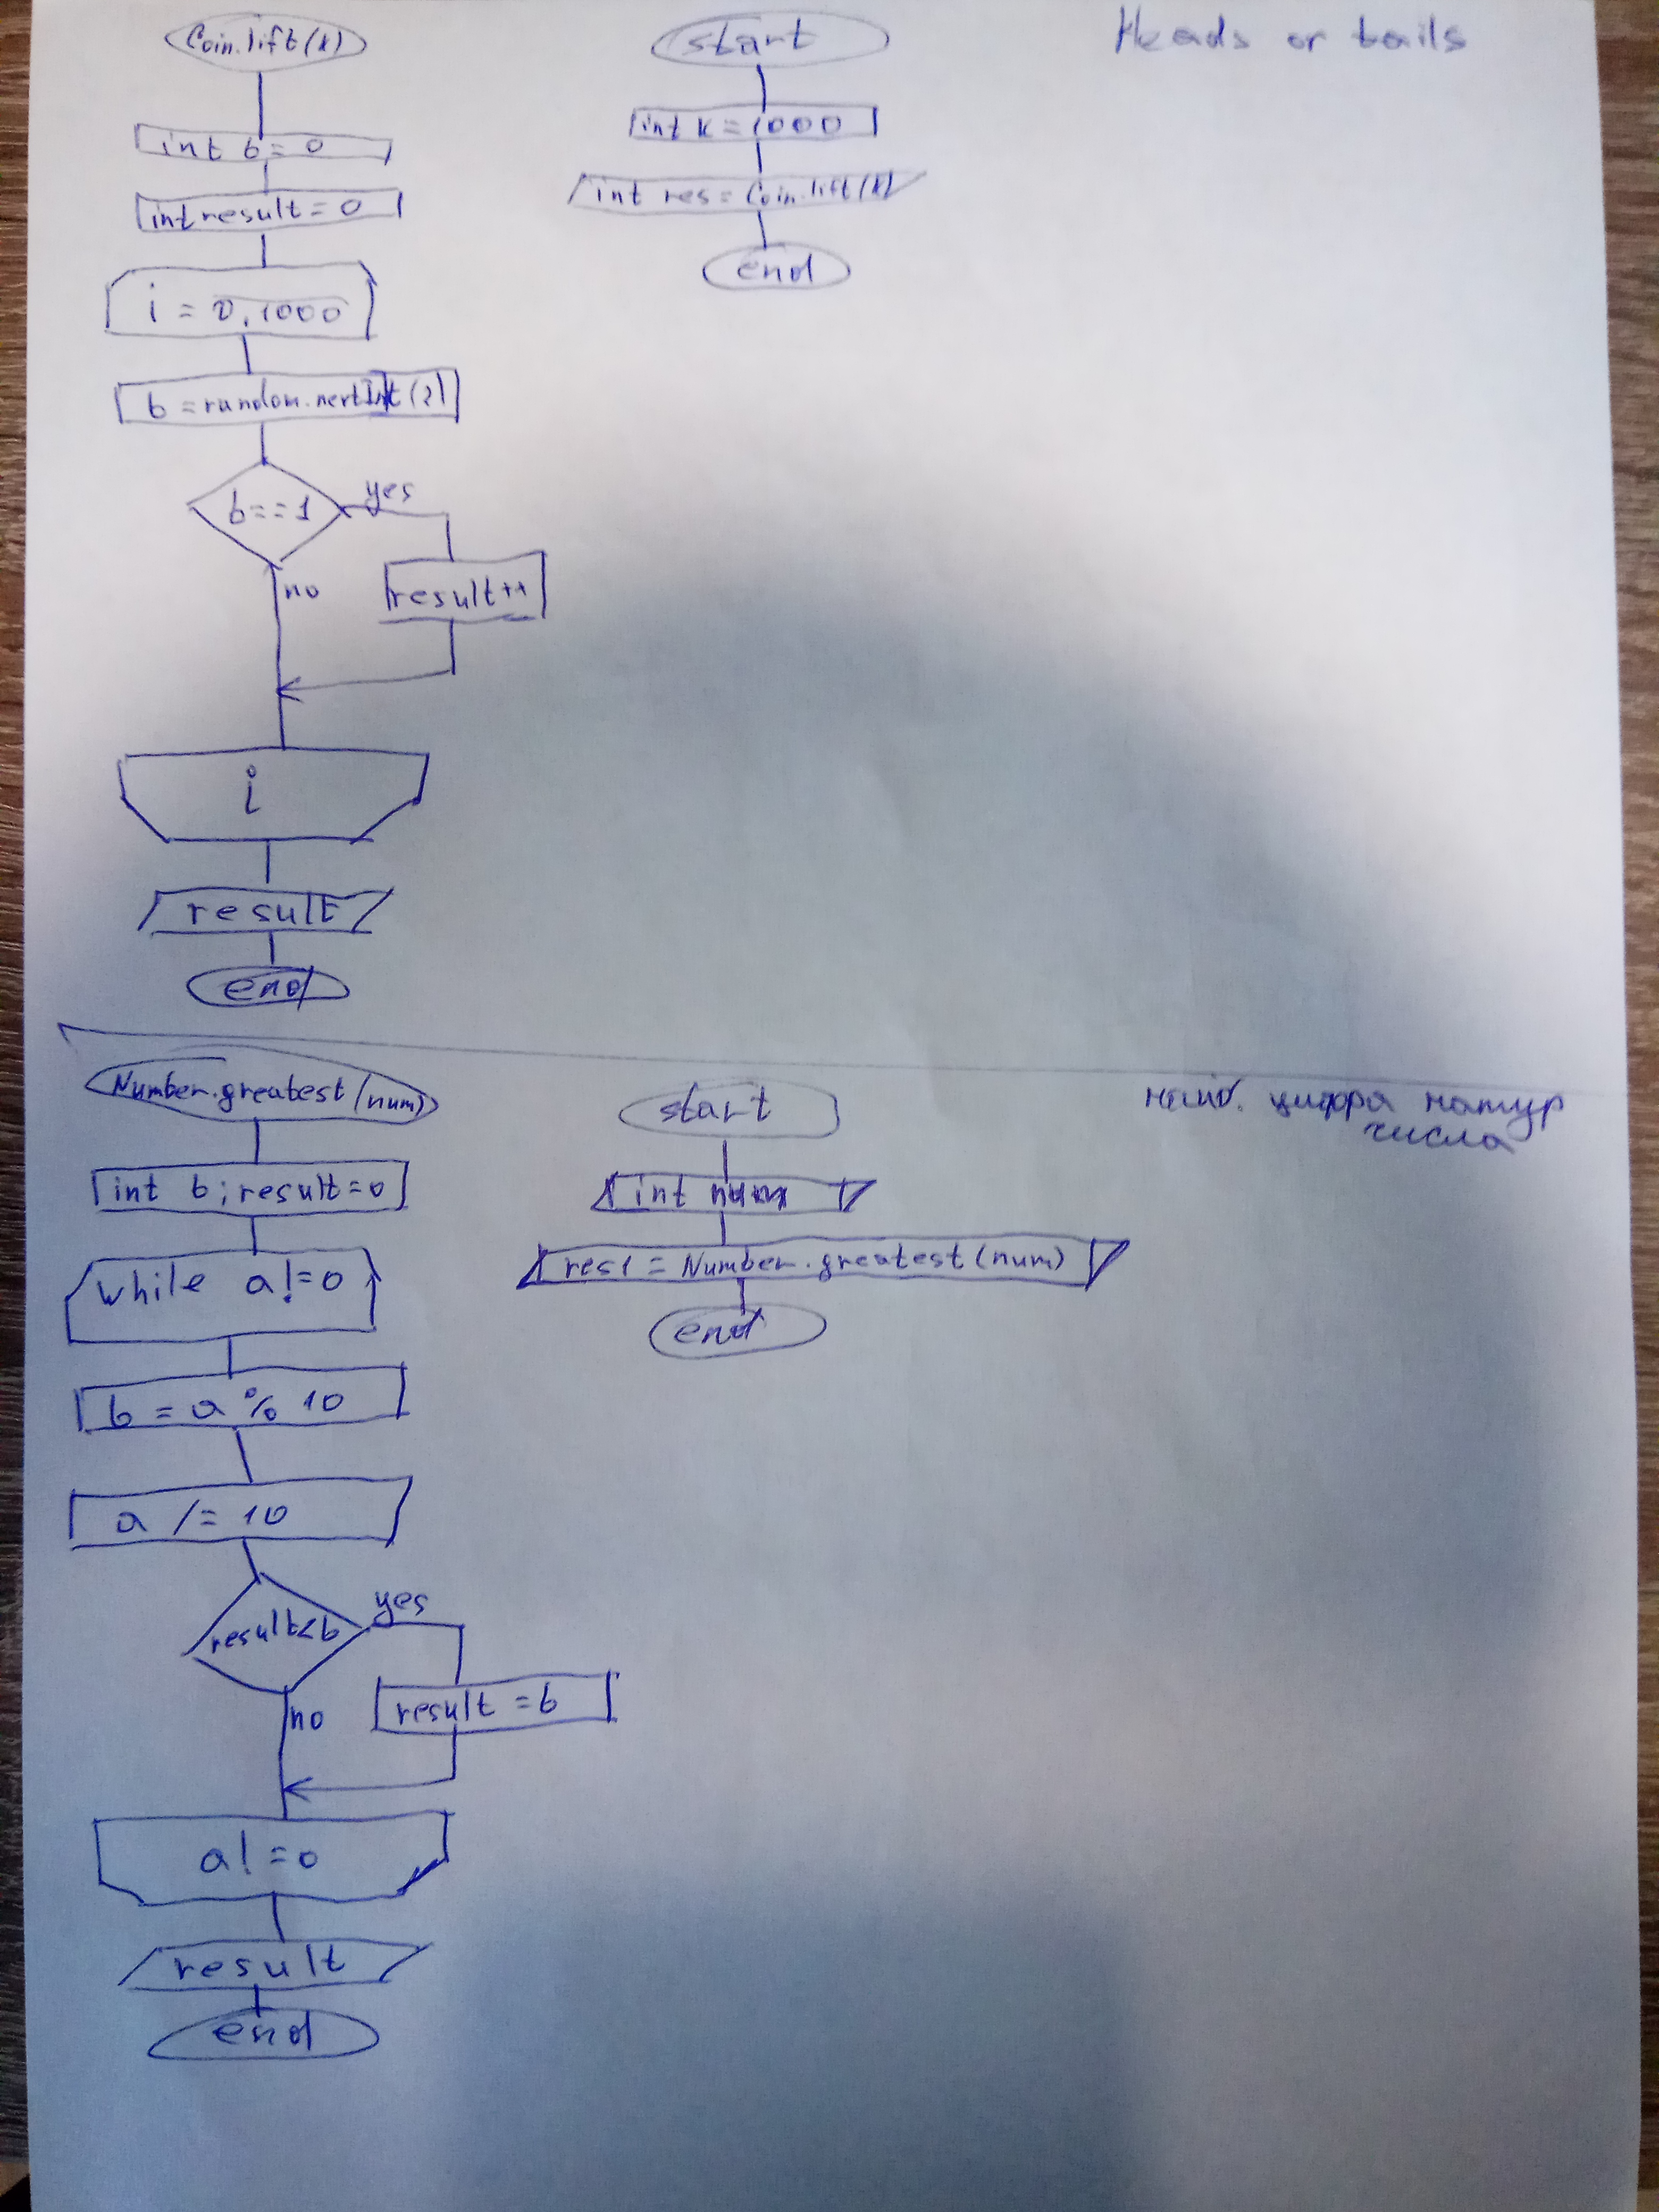 Coin.lift(k)
int b = 0
int result = 0
i = 0, 1000
b = random.nextInt(2)
b == 1
yes
no
result++
i
result
end
start
int k = 1000
int res = Coin.lift(k)
end
Heads or tails
Number.greatest(num)
int b; result = 0
while a != 0
b = a % 10
a /= 10
result < b
yes
no
result = b
a! = 0
result
end
start
int num
res1 = Number.greatest(num)
end
наиб. цифра натур
числа